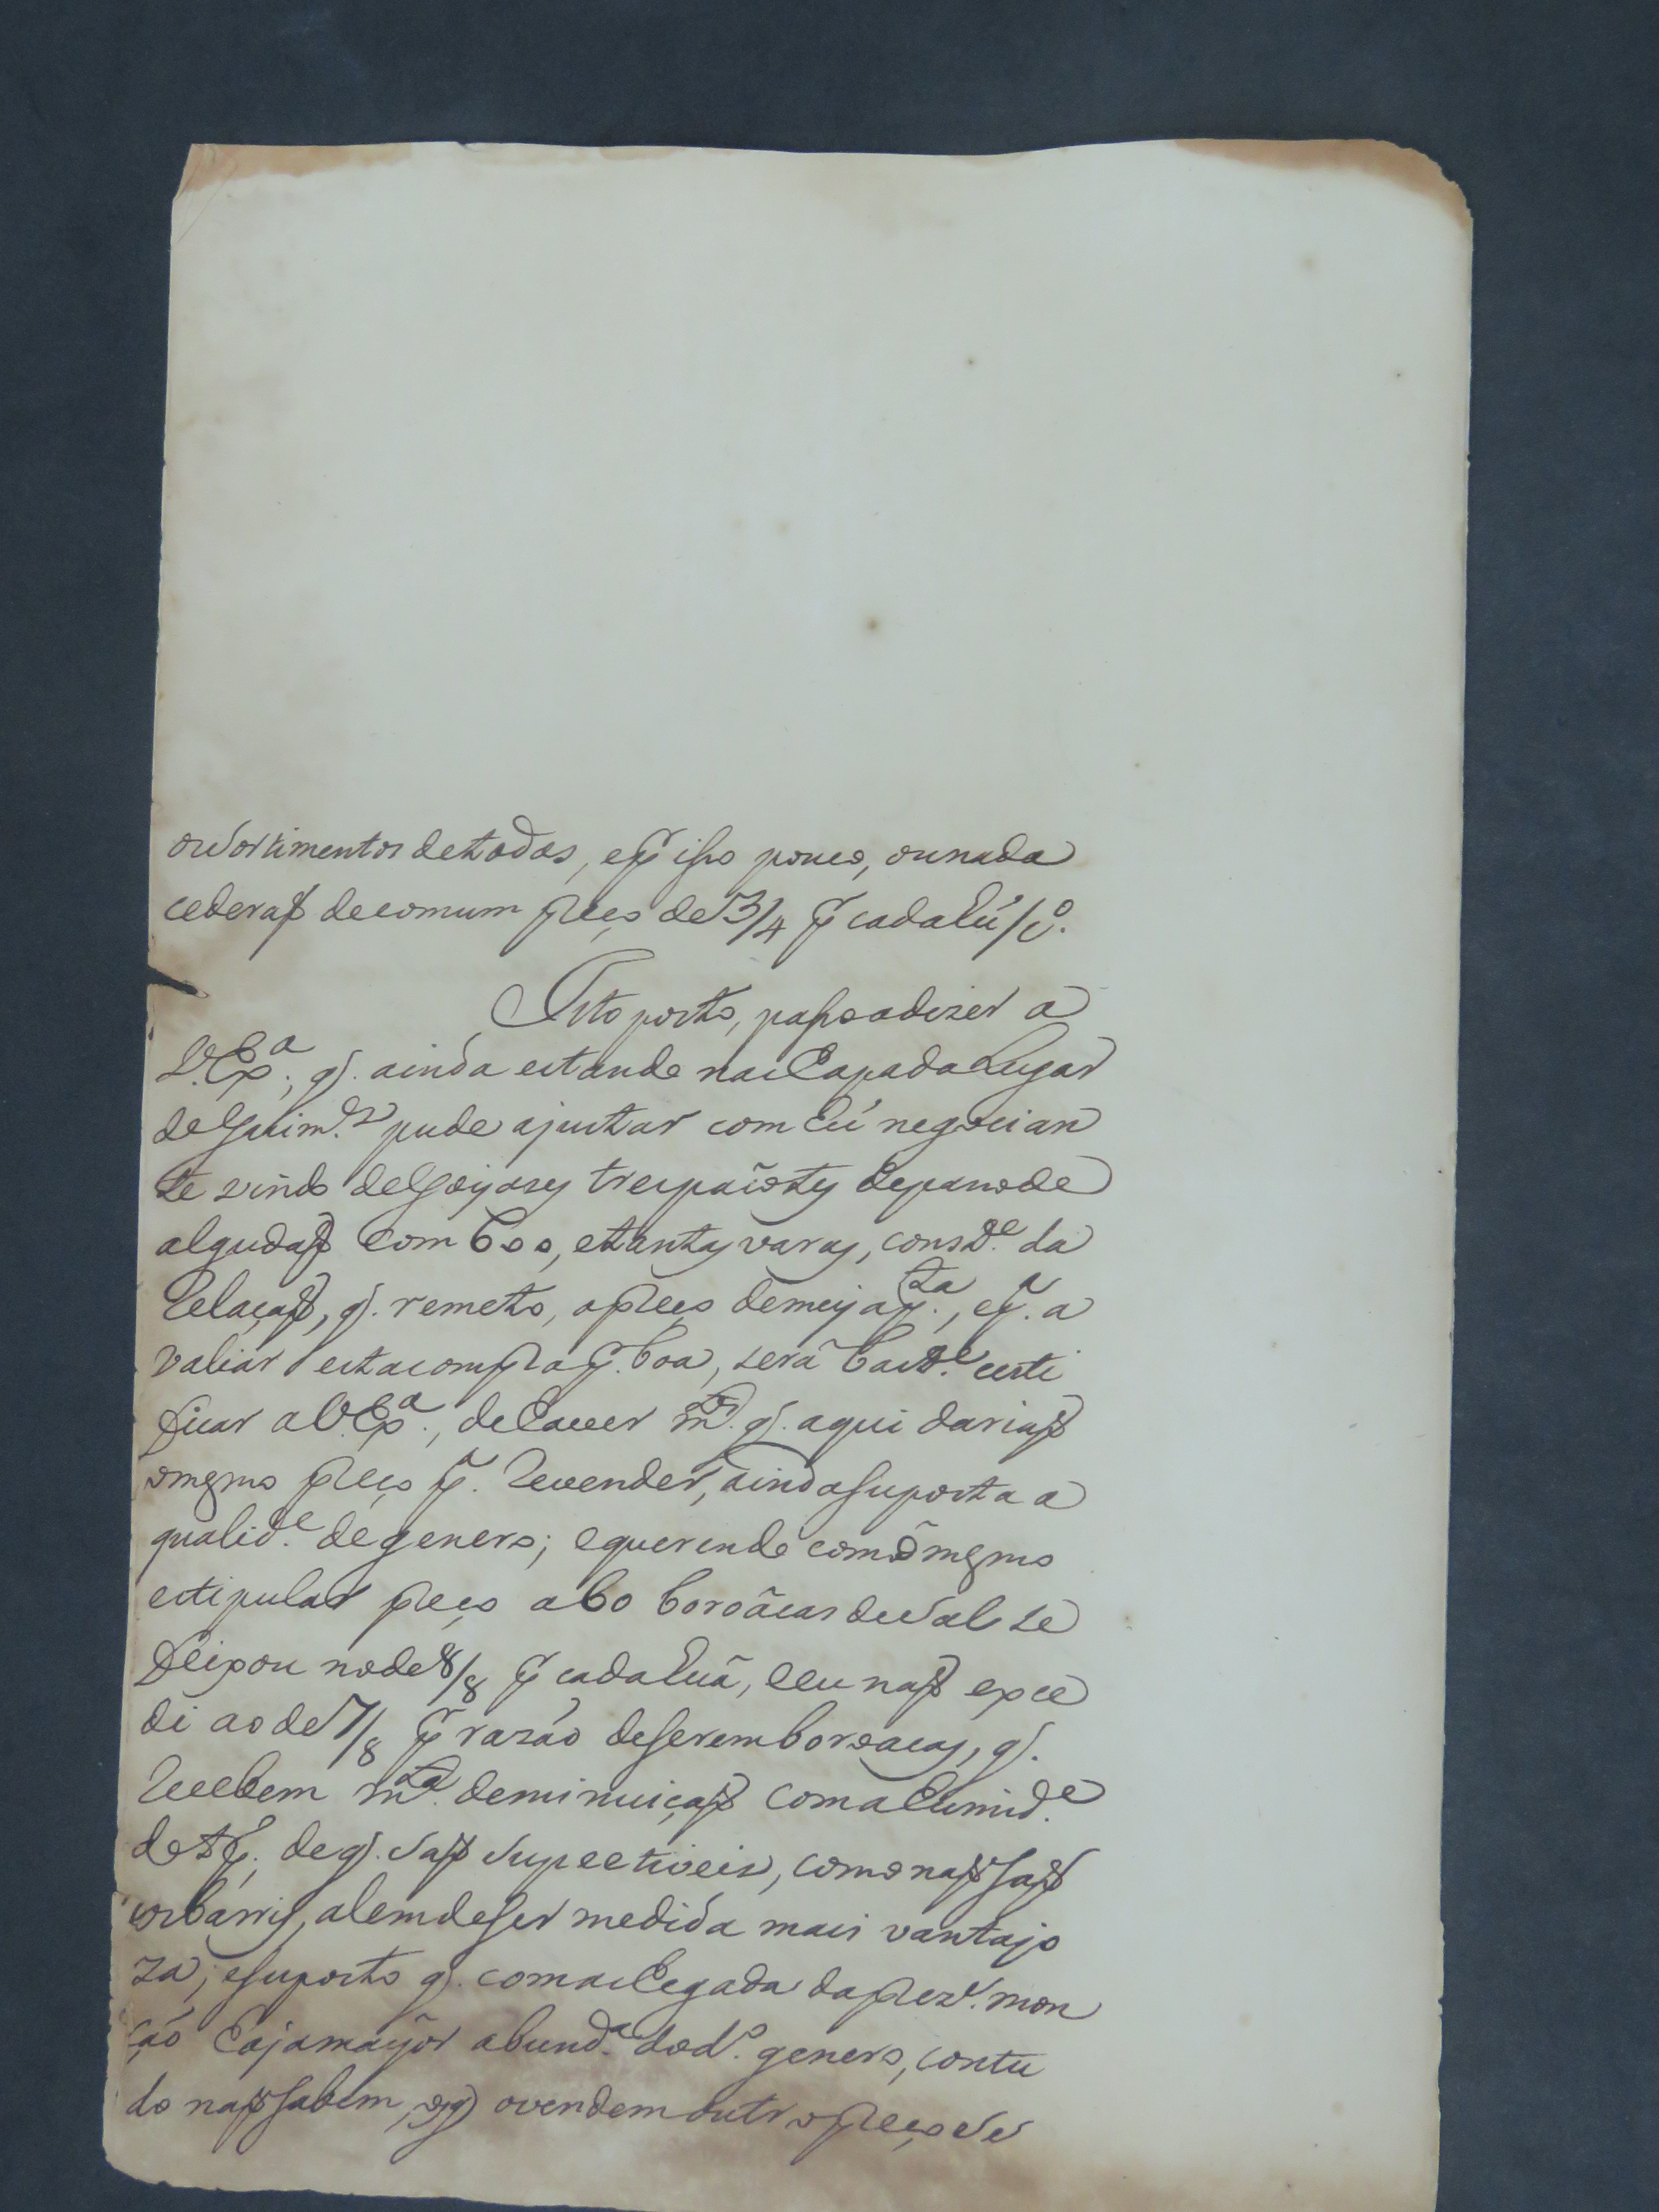 ousortimentos detodas, epʳ isso pouco, ounada
cederaõ decomum preço de 3/4 pʳ cadahú
Isto posto, passoadizer a
V.Exª., q̃. ainda estando nachapada Lugar
deGuim.ᵉˢ pude ajustar com hú negocian
te vindo deGoyases trespaiotes depanode
algudaõ com 600, etantas varas, const.ᵉ da
relaçaõ, q̃. remeto, apreço demeyaq.ᵗᵃ, ep.ª a
valiar estacompra pʳ. boa, será bast.ᵉ certi
ficar aV.Exª., dehaver m.ᵗᵒˢ q̃. aqui dariaõ
omesmo preço pª. revender, aindasuposta a
qualid.ᵉ degenero; equerendo como mesmo
estipular preço a60 boroácas desal se
feixou node 8/8 pʳ cadahuã, eeu naõ exce
di ao de 7/8 pʳ razáo deserem boroacas, q̃.
recebem m.ᵗᵃ deminuiçaõ comahumid.ᵉ
do tp̃., deq̃. saõ supcetiveis, comonaõ saõ
osbarris, alemdeser medida mais vantajo
za; esuposto q̃. comachegada daprez.ᵉ mon
çáo hajamayor abund.ª dod.º genero, contu
do naõ sabem, seq̃ ovendem outro preço se